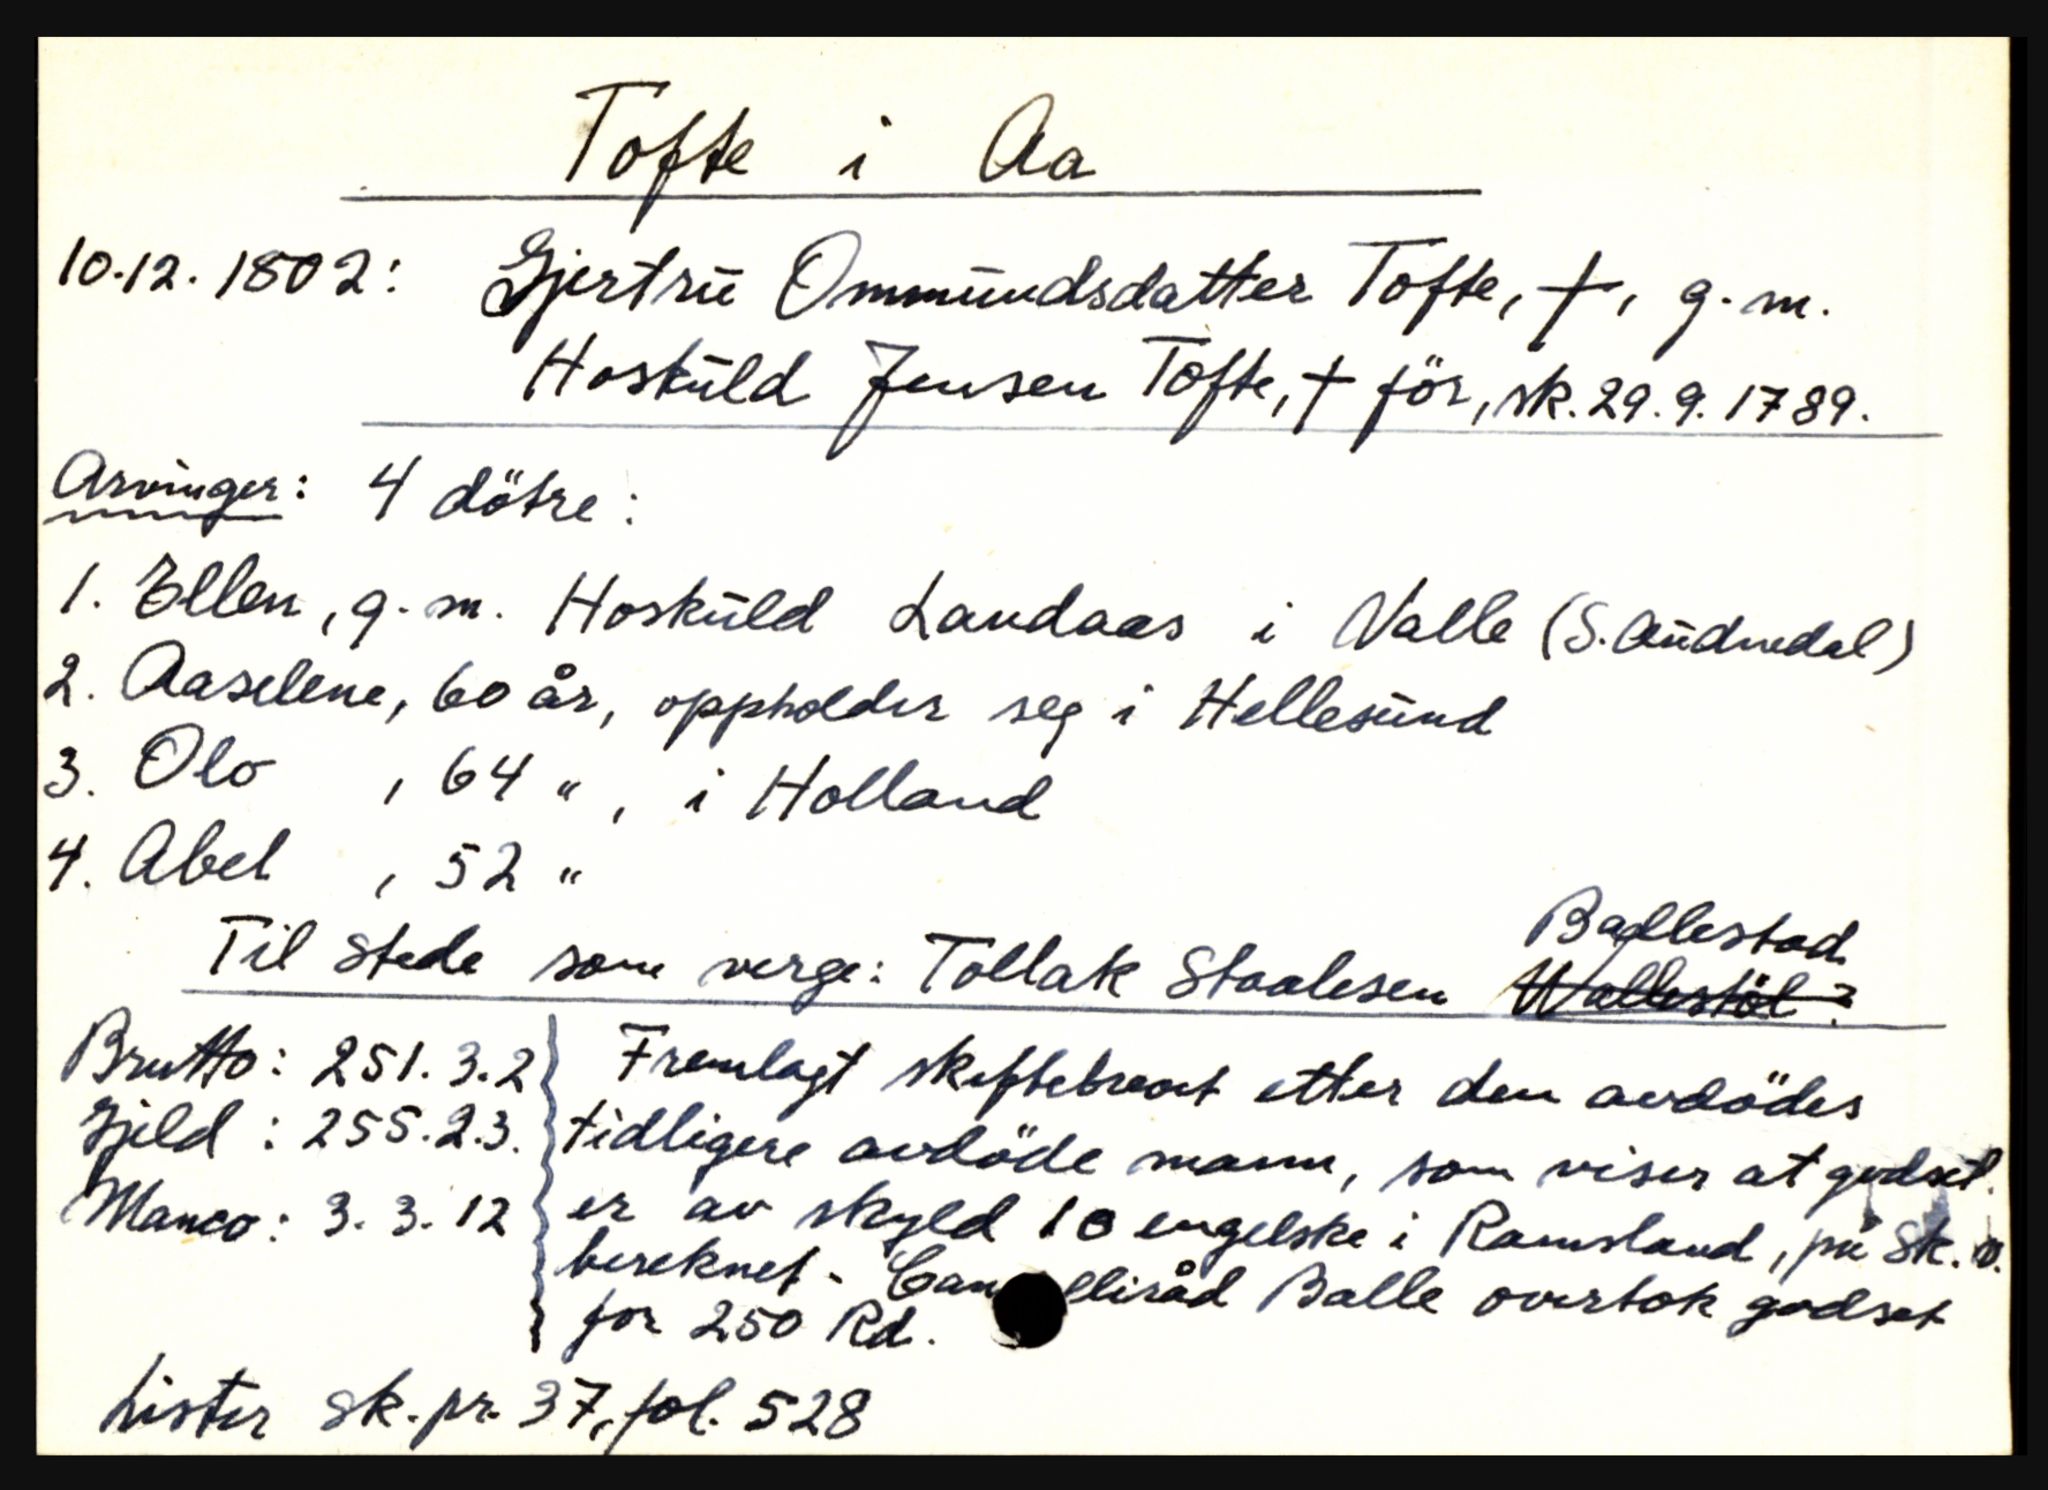 Tofte i Aa
10.12.1802: Gjertrü Ommündsdatter Tofte, †, g.m.
Hosküld Jensen Tofte, † för, sk. 29.9.1789.
Arvinger: 4 dötre:
1. Ellen, g.m. Hosküld Landaas i Valle (S. Aüdnedal)
2. Aaselene, 60 år, oppholder seg i Hellesünd
3. Olo , 64 " , i Holland
4. Abel , 52 "
Badlestad
Til stede som verge: Tollak Staalesen Wallestöl?
Brutto: 251.3.2
Gjeld: 255.2.3.
Manco: 3.3.12
Fremlagt skiftebrevet etter den avdödes
tidligere avdöde mann, som viser at godset
er av skyld 10 engelske i Ramsland, på Sk.
bereknet - Can lliråd Balle overtok godset
for 250 Rd.
Lister sk.pr. 37, fol. 528